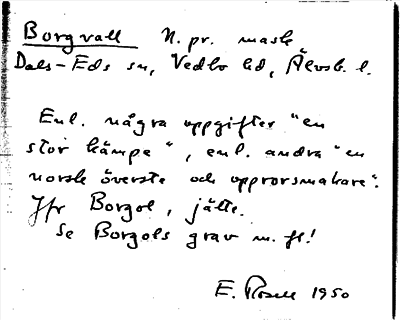 Borgvall N. pr. mask
Dals-Eds sn, Vedbo hd, Älvsb. l.
Enl. några uppgifter "en
stor kämpe", enl. andra "en
norsk överste och upprorsmakare".
Jfr Borgol, jätte.
Se Borgols grav m. fl!
E. Rosell 1950